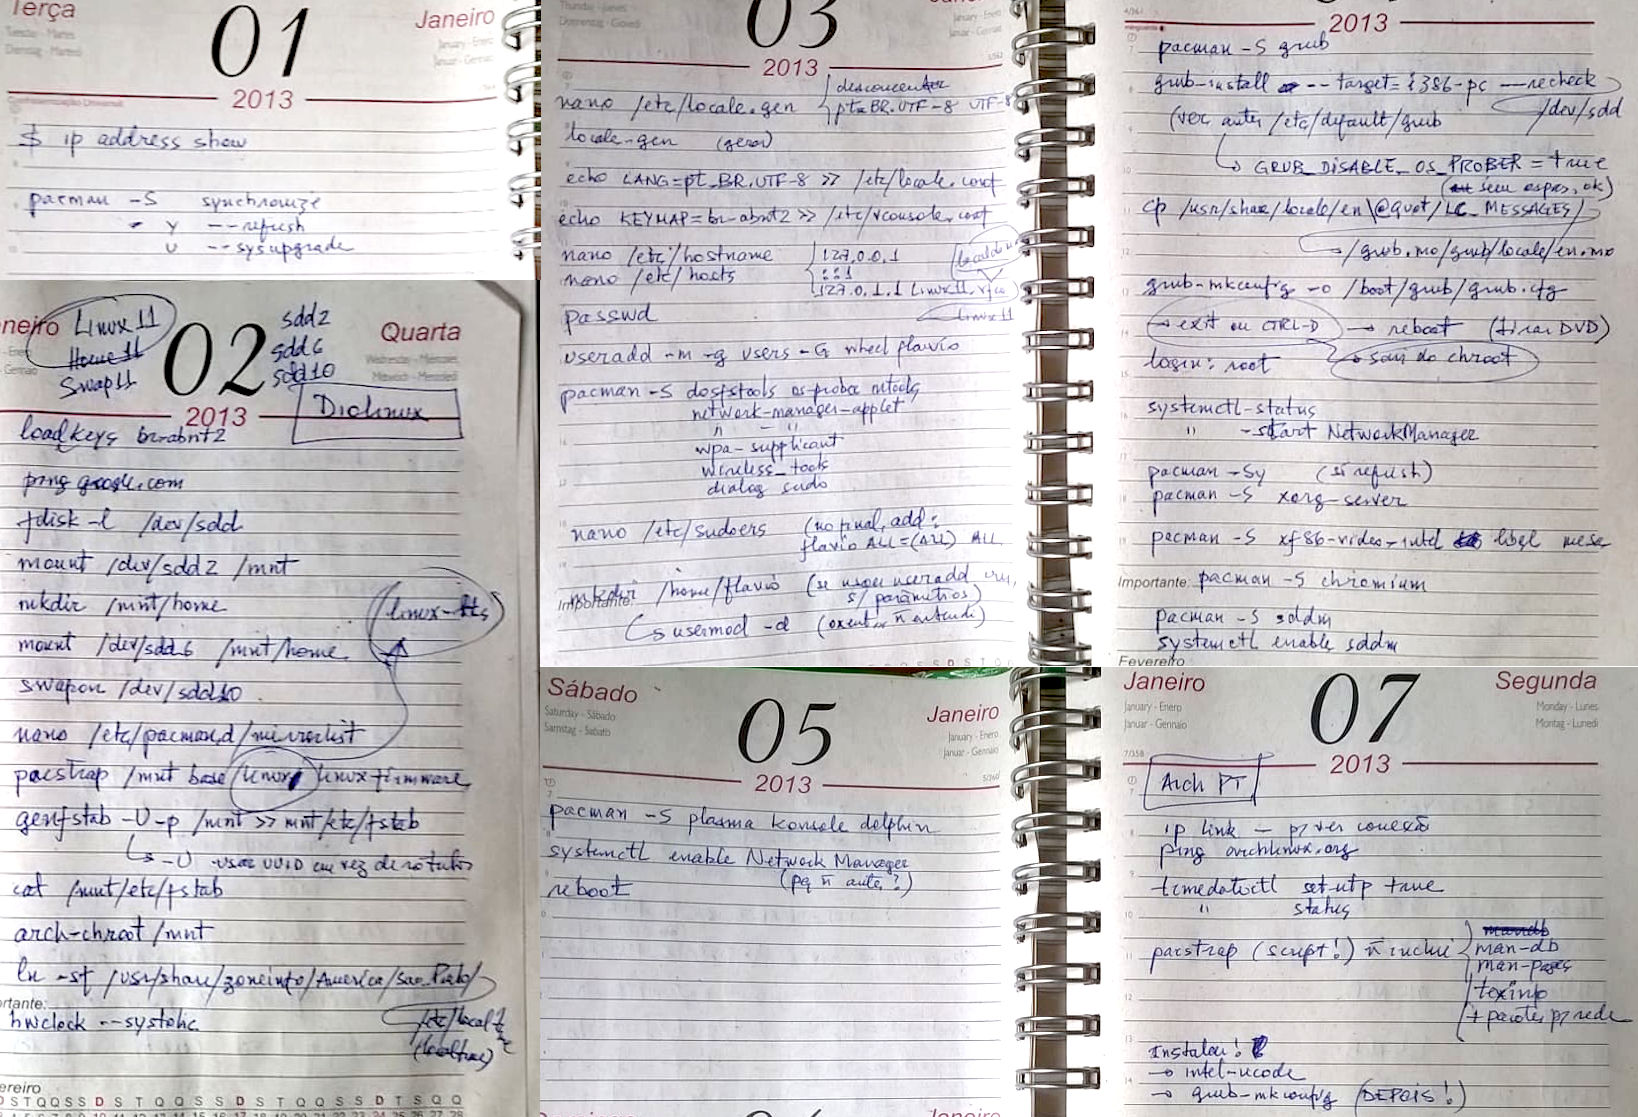 Terça
01
Janeiro
January - Enero
Januar - Gennaio
2013
$ ip address show
pacman -S synchronize
- y --refresh
u --sysupgrade
neiro
Linux11
Home11
Swap11
02
sdd2
sdd6
sdd10
Quarta
Wednesday - Miércoles
2013
Diolinux
loadkeys br-abnt2
ping google.com
fdisk -l /dev/sdd
mount /dev/sdd2 /mnt
mkdir /mnt/home
(linux-lts)
mount /dev/sdd6 /mnt/home
swapon /dev/sdd10
nano /etc/pacman.d/mirrorlist
pacstrap /mnt base linux linux-firmware
genfstab -U -p /mnt >> mnt/etc/fstab
↳ -U usar UUID em vez de rótulos
cat /mnt/etc/fstab
arch-chroot /mnt
ln -sf /usr/share/zoneinfo/America/Sao_Paulo/
/etc/localtime
(localtime)
rtante:
hwclock --systohc
ereiro
03
January - Enero
Januar - Gennaio
2013
nano /etc/locale.gen
descomentar
pt_BR.UTF-8 UTF-8
locale-gen (gerar)
echo LANG=pt_BR.UTF-8 >> /etc/locale.conf
echo KEYMAP=br-abnt2 >> /etc/vconsole.conf
nano /etc/hostname
nano /etc/hosts
127.0.0.1
::1
127.0.1.1 Linux11
Linux11
passwd
useradd -m -g users -G wheel flavio
pacman -S dosfstools os-prober mtools
network-manager-applet
" - "
wpa-supplicant
wireless_tools
dialog sudo
nano /etc/sudoers (no final, add:
flavio ALL=(ALL) ALL
Importante:
mkdir /home/flavio (se usou useradd
s/ parâmetros)
↳ usermod -d
2013
pacman -S grub
grub-install --target=i386-pc --recheck
/dev/sdd
(ver antes /etc/default/grub
↳ GRUB_DISABLE_OS_PROBER = true
cp /usr/share/locale/en\@quot/LC_MESSAGES/
/grub.mo/grub/locale/en.mo
grub-mkconfig -o /boot/grub/grub.cfg
→ exit ou CTRL-D → reboot (tirar DVD)
login: root
→ sai do chroot
systemctl-status
" -start NetworkManager
pacman -Sy (só refresh)
pacman -S xorg-server
pacman -S xf86-video-intel libgl mesa
Importante:
pacman -S chromium
pacman -S sddm
systemctl enable sddm
Fevereiro
Sábado
Saturday - Sábado
Samstag - Sabato
05
Janeiro
January - Enero
Januar - Gennaio
2013
pacman -S plasma konsole dolphin
systemctl enable Network Manager
(pq ñ antes?)
reboot
Janeiro
January - Enero
Januar - Gennaio
07
Segunda
Monday - Lunes
Montag - Lunedì
7/358
2013
Arch PT
ip link - p/ ver conexão
ping archlinux.org
timedatectl set-ntp true
" status
pacstrap (script!) ñ inclui
mandb
man-db
man-pages
texinfo
+ pacotes p/ rede
Instalar!
→ intel-ucode
→ grub-mkconfig (DEPOIS!)
Janeiro